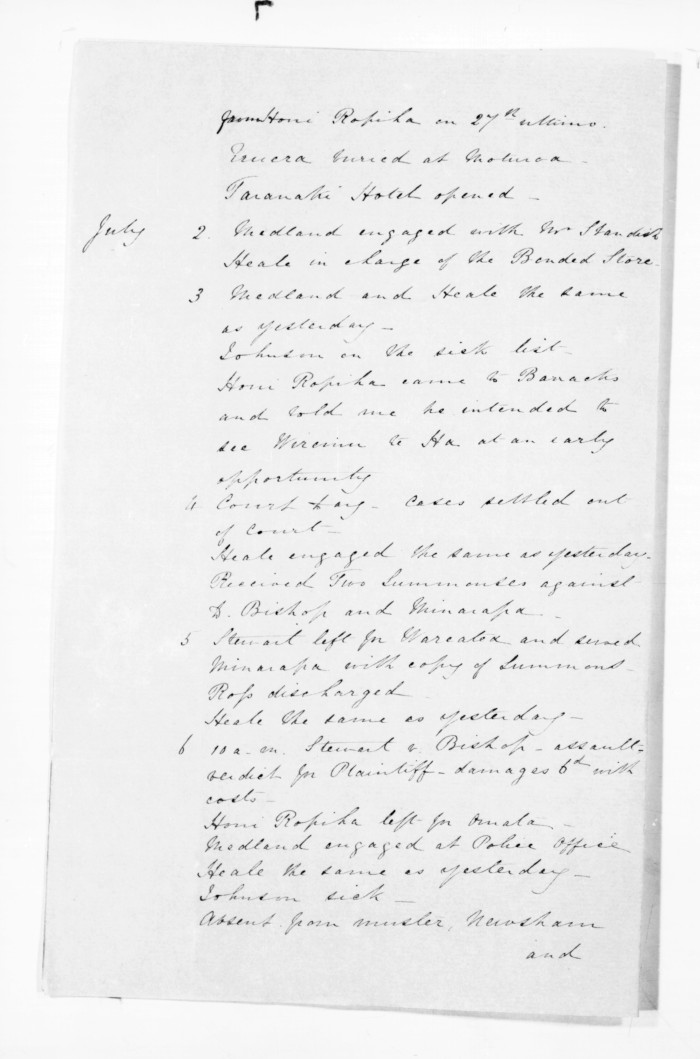 from Honi Ropiha on 27th ultimo.
Eruera buried at Moturoa -
Taranaki Hotel opened -
July 2. Medland engaged with Mr Standish
Heale in charge of the Bonded Store.
3 Medland and Heale the same
as yesterday -
Johnson on the sick list -
Honi Ropiha came to Barracks
and told me he intended to
see Wiremu te Ha at an early
opportunity
4 Court day - cases settled out
of court -
Heale engaged the same as yesterday.
Received Two Summonses against
D. Bishop and Minarapa.
5 Stewart left for Wareatea and served
Minarapa with copy of Summons -
Ross discharged
Heale the same as yesterday -
6 10 a.m. Stewart v. Bishop - assault -
verdict for Plaintiff - damages 6d with
costs -
Honi Ropiha left for Omata -
Medland engaged at Police Office
Heale the same as yesterday -
Johnson sick -
Absent from muster, Newsham
and